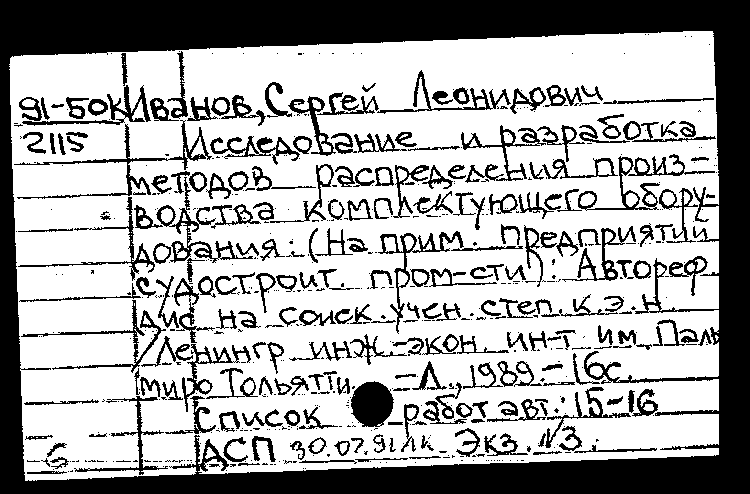 91-50К Иванов, Сергей Леонидович
2115 Исследование и разработка
методов распределения произ-
водства комплектующего обору-
дования: (На прим. предприятий
судостроит. пром-сти): Автореф.
дис на соиск. учен. степ. к.э.н.
/Ленингр инж.-экон. ин-т им. Паль
миро Тольятти. -Л., 1989.-16с.
Список работ авт.: 15-16
6 ДСП 30.07.91 лк Экз. №3.